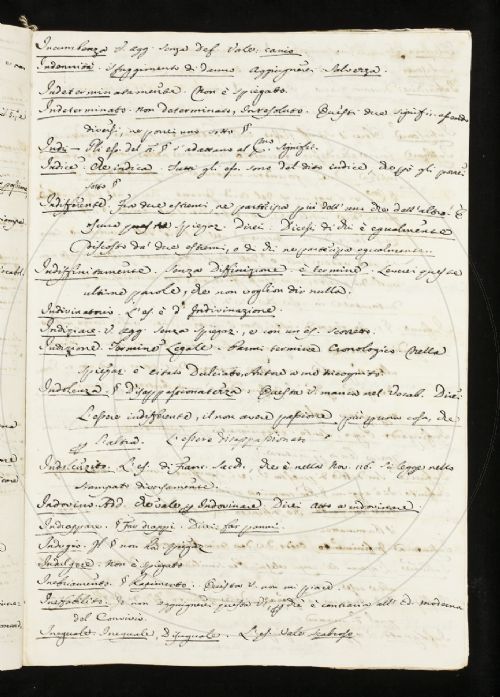 Incumbenza V. agg. senza def. Vale: carico
Indennità. Sfuggimento di danno. Aggiugnerei Salvezza.
Indeterminatamente. Non è spiegato.
Indeterminato. Non determinato, Irresoluto. Questi due signific. essendo
diversi, ne porrei uno sotto §
Indi — Gli es. del n.° § s'adattano al signific.
Indice. Che indica. Tutti gli es. sono del dito indice, che però gli porrei
sotto §
Indifferente. Fra due estremi, ne partecipa più dell'uno che dell'altro. È
oscura spiegaz. Direi: Dicesi di chi è egualmente
discosto da' due estremi, o di chi ne partecipa egualmente.
Indiffinitamente. Senza Diffinizione e termine. Leverei queste
ultime parole, che non voglion dir nulla.
Indivinatorio. L'es. è d' Indivinazione.
Indiziare. V. agg. senza spiegaz., e con un es. scorretto.
Indizione. Termine Legale. Parmi termine Cronologico. Nella
spiegaz. è citato Autore a me incognito.
Indolenza. § Disappassionatezza. Questa V. manca nel Vocab. Direi:
L'essere indifferente, il non avere passione per qualche cosa, che
L'essere disappassionato
L'es. di Franc. Sacch. che è nella Nov. 116. si legge nello
stampato diversamente.
Indovino. Add. Che vale Indovinare. Direi Atto a indovinare.
Indrappare. § Far drappi. Direi: far panni.
Indugio. Il § non ha spiegaz.
Indulgere. Non è spiegato
§ Rapimento. Questa V. non mi piace
Ineffabilità. Io non aggiugnerei questa V. perchè è contraria all' Ed. moderna
del Convivio.
Ineguale. Inequale, Diseguale. L'es. vale Scabroso